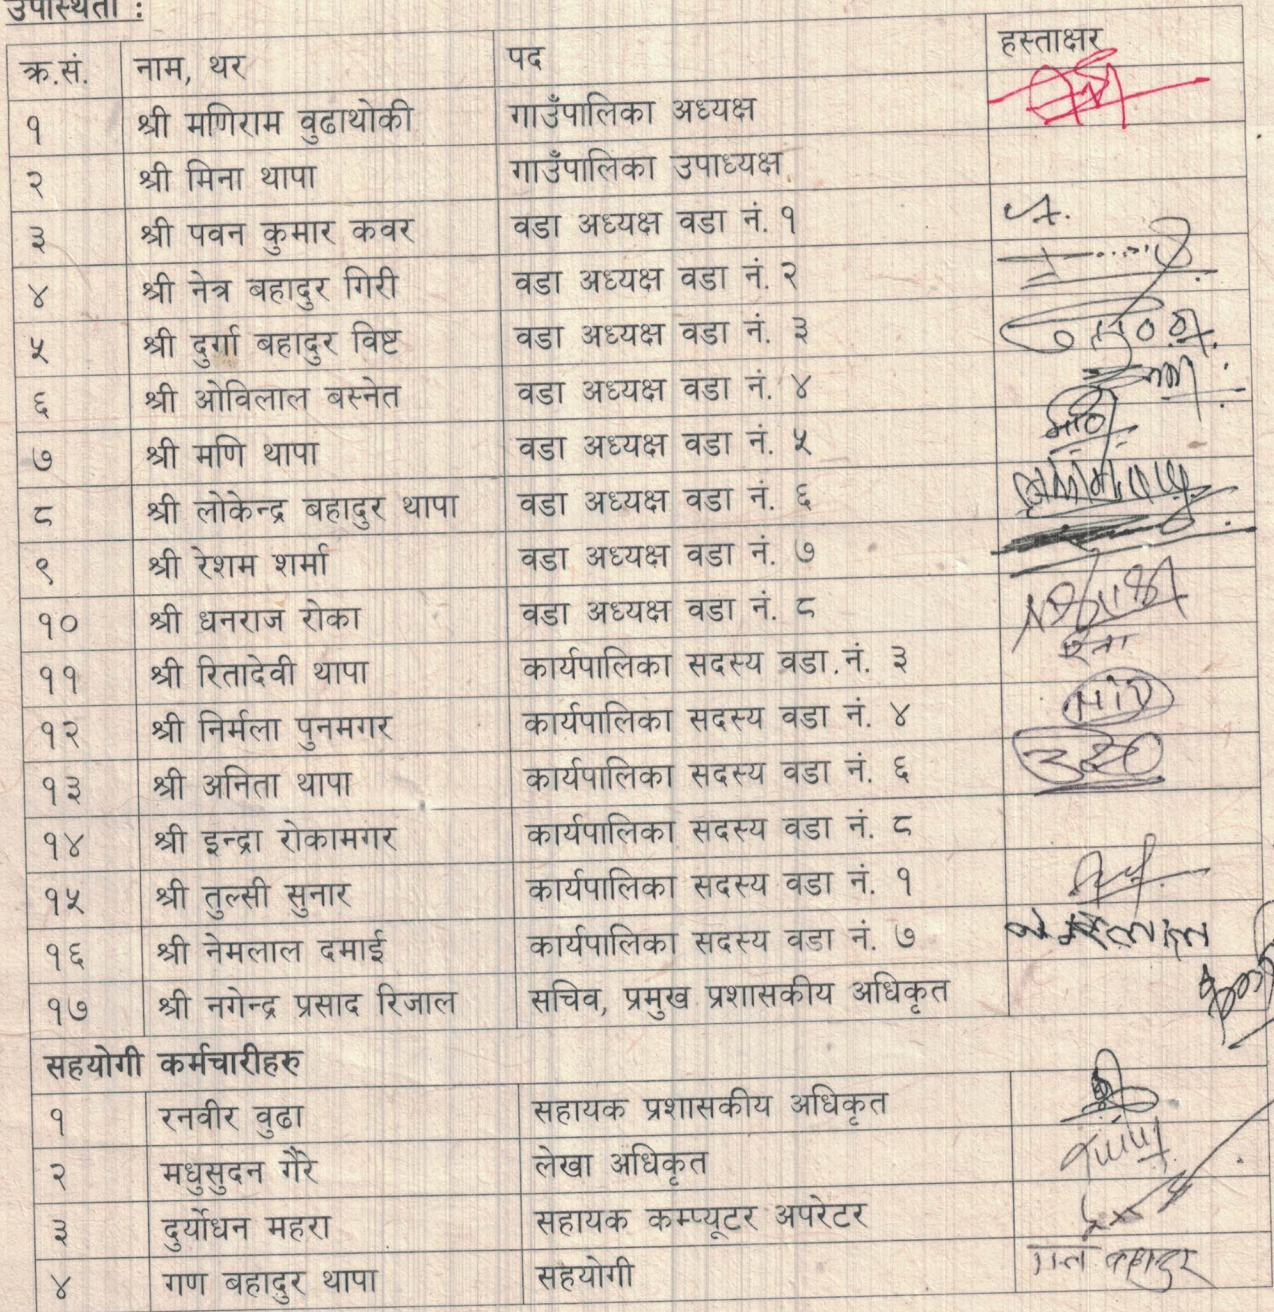 उपस्थिती :
क्र.सं. नाम, थर पद हस्ताक्षर
१ श्री मणिराम वुढाथोकी गाउँपालिका अध्यक्ष
२ श्री मिना थापा गाउँपालिका उपाध्यक्ष
३ श्री पवन कुमार कवर वडा अध्यक्ष वडा नं. १
४ श्री नेत्र बहादुर गिरी वडा अध्यक्ष वडा नं. २
५ श्री दुर्गा बहादुर विष्ट वडा अध्यक्ष वडा नं. ३
६ श्री ओविलाल बस्नेत वडा अध्यक्ष वडा नं. ४
७ श्री मणि थापा वडा अध्यक्ष वडा नं. ५
८ श्री लोकेन्द्र बहादुर थापा वडा अध्यक्ष वडा नं. ६
९ श्री रेशम शर्मा वडा अध्यक्ष वडा नं. ७
१० श्री धनराज रोका वडा अध्यक्ष वडा नं. ८
११ श्री रितादेवी थापा कार्यपालिका सदस्य वडा.नं. ३
१२ श्री निर्मला पुनमगर कार्यपालिका सदस्य वडा नं. ४
१३ श्री अनिता थापा कार्यपालिका सदस्य वडा नं. ६
१४ श्री इन्द्रा रोकामगर कार्यपालिका सदस्य वडा नं. ८
१५ श्री तुल्सी सुनार कार्यपालिका सदस्य वडा नं. १
१६ श्री नेमलाल दमाई कार्यपालिका सदस्य वडा नं. ७
१७ श्री नगेन्द्र प्रसाद रिजाल सचिव, प्रमुख प्रशासकीय अधिकृत
सहयोगी कर्मचारीहरु
१ रनवीर वुढा सहायक प्रशासकीय अधिकृत
२ मधुसुदन गैरे लेखा अधिकृत
३ दुर्योधन महरा सहायक कम्प्यूटर अपरेटर
४ गण बहादुर थापा सहयोगी